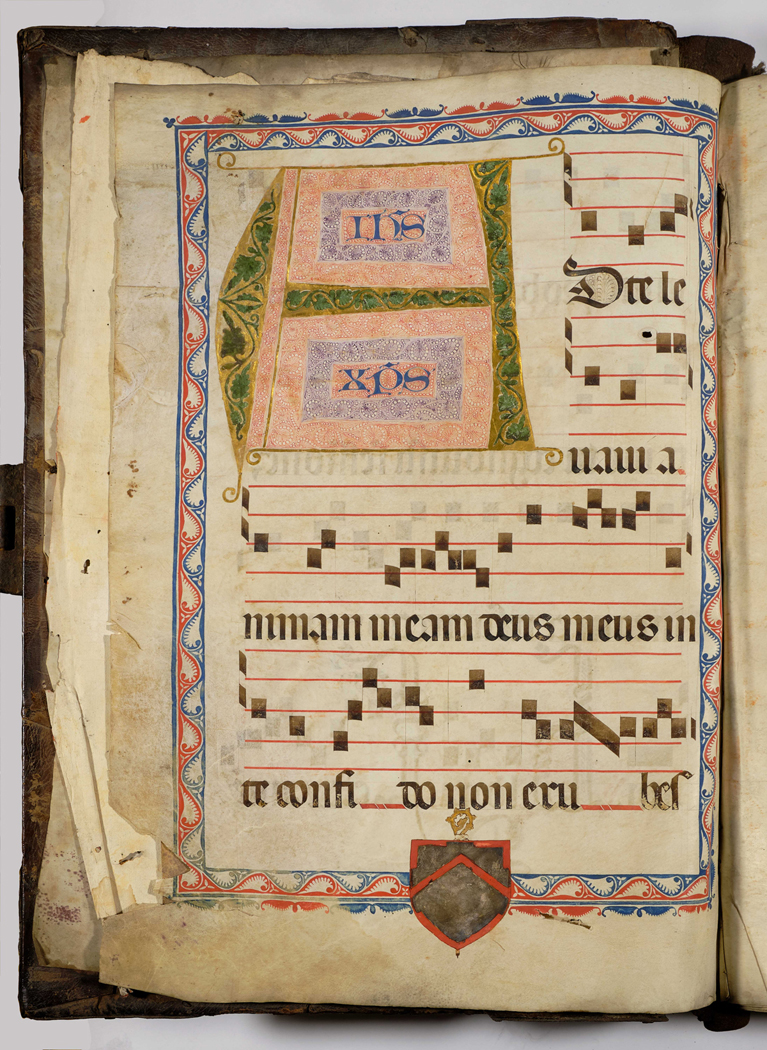 A
ihs
xps
D te le
uaui a
nimam meam deus meus in
te confi__do non eru____bes